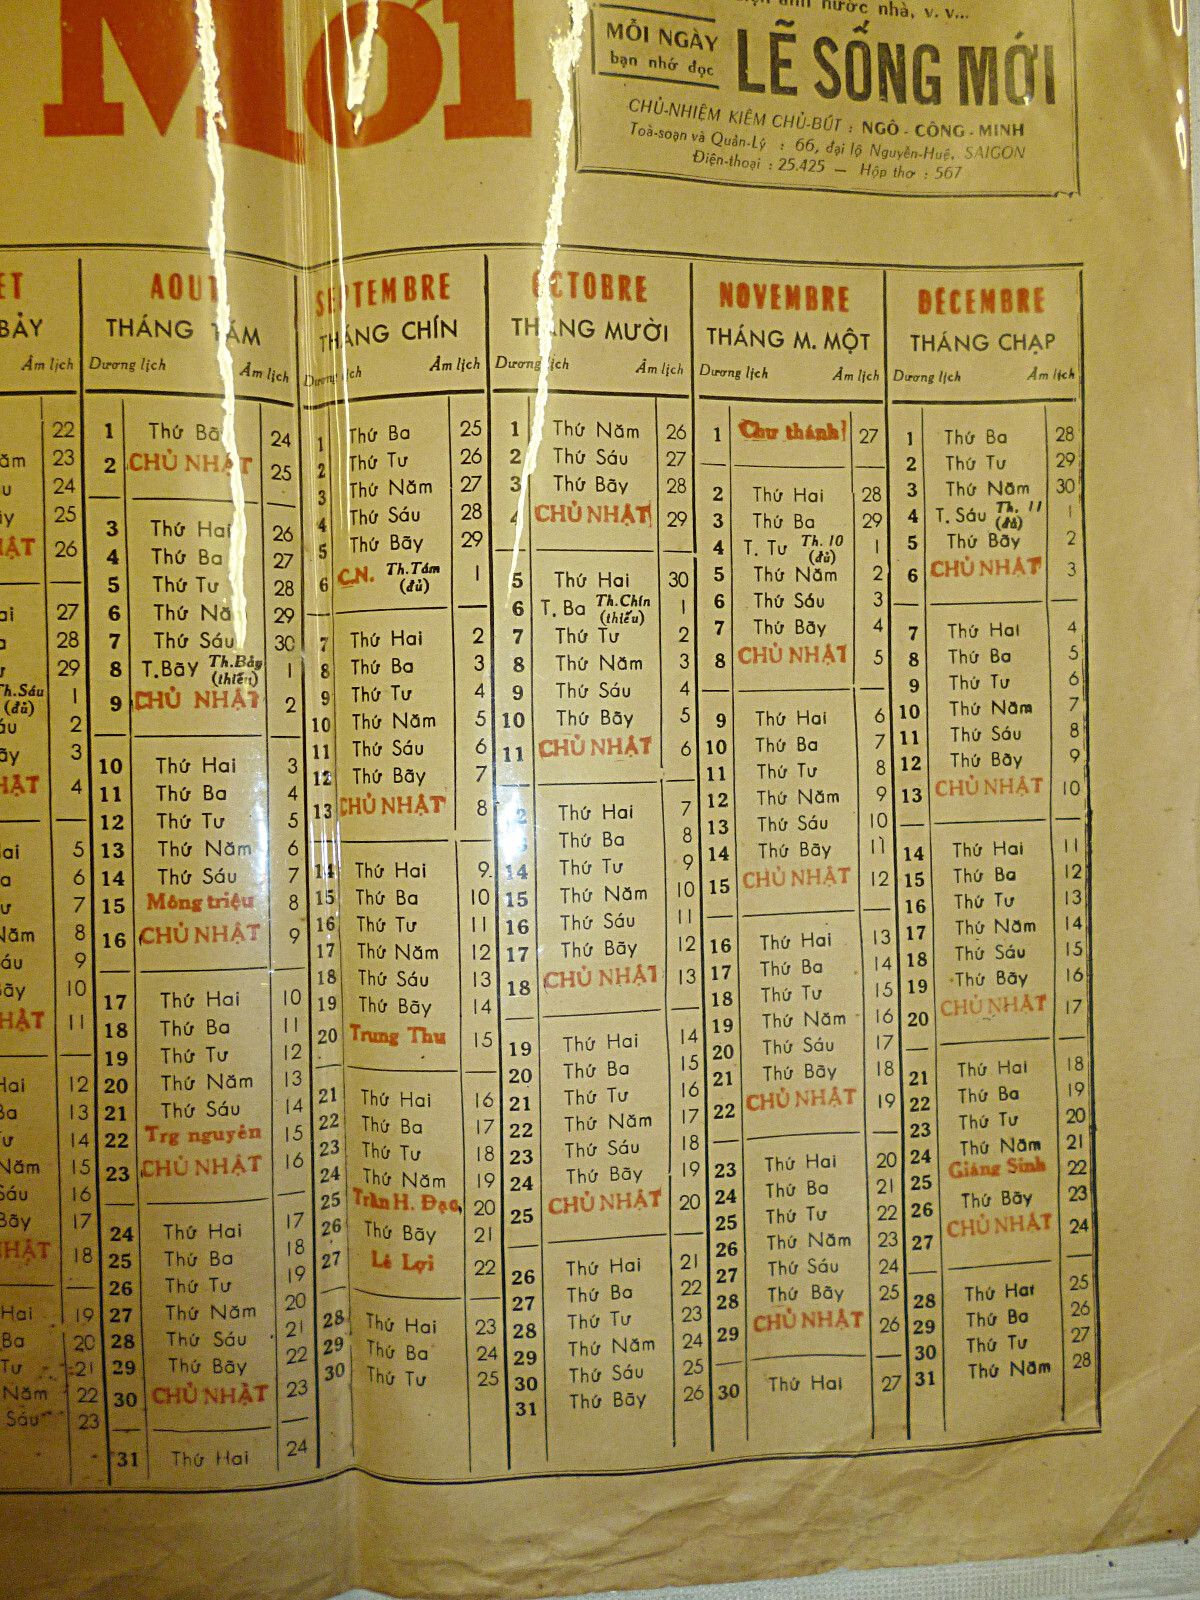 Mới
ảnh nước nhà, v. v...
MỖI NGÀY
bạn nhớ đọc
LẼ SỐNG MỚI
CHỦ-NHIỆM KIÊM CHỦ-BÚT : NGÔ - CÔNG - MINH
Toà-soạn và Quản-Lý : 66, đại lộ Nguyễn-Huệ, SAIGON
Điện-thoại : 25.425 — Hộp thơ : 567
BẢY
Âm lịch
22
23
24
25
26
27
28
29
Th.Sáu (đủ) 1
2
3
4
Hai 5
6
7
Năm 8
9
Bãy 10
11
Hai 12
Ba 13
14
Năm 15
Sáu 16
Bãy 17
18
Hai 19
Ba 20
Tư 21
Năm 22
Sáu 23
AOUT
THÁNG TÁM
Dương lịch Âm lịch
1 Thứ Bã 24
2 CHỦ NHẬT 25
3 Thứ Hai 26
4 Thứ Ba 27
5 Thứ Tư 28
6 Thứ Nă 29
7 Thứ Sáu 30
8 T.Bãy Th.Bảy (thiếu) 1
9 CHỦ NHẬT 2
10 Thứ Hai 3
11 Thứ Ba 4
12 Thứ Tư 5
13 Thứ Năm 6
14 Thứ Sáu 7
15 Mông triệu 8
16 CHỦ NHẬT 9
17 Thứ Hai 10
18 Thứ Ba 11
19 Thứ Tư 12
20 Thứ Năm 13
21 Thứ Sáu 14
22 Trg nguyên 15
23 CHỦ NHẬT 16
24 Thứ Hai 17
25 Thứ Ba 18
26 Thứ Tư 19
27 Thứ Năm 20
28 Thứ Sáu 21
29 Thứ Bãy 22
30 CHỦ NHẬT 23
31 Thứ Hai 24
SEPTEMBRE
THÁNG CHÍN
Dương lịch Âm lịch
1 Thứ Ba 25
2 Thứ Tư 26
3 Thứ Năm 27
4 Thứ Sáu 28
5 Thứ Bãy 29
6 C.N. Th.Tám (đủ) 1
7 Thứ Hai 2
8 Thứ Ba 3
9 Thứ Tư 4
10 Thứ Năm 5
11 Thứ Sáu 6
12 Thứ Bãy 7
13 CHỦ NHẬT 8
14 Thứ Hai 9
15 Thứ Ba 10
16 Thứ Tư 11
17 Thứ Năm 12
18 Thứ Sáu 13
19 Thứ Bãy 14
20 Trung Thu 15
21 Thứ Hai 16
22 Thứ Ba 17
23 Thứ Tư 18
24 Thứ Năm 19
25 Trần H. Đạo 20
26 Thứ Bãy 21
27 Lê Lợi 22
28 Thứ Hai 23
29 Thứ Ba 24
30 Thứ Tư 25
OCTOBRE
THÁNG MƯỜI
Dương lịch Âm lịch
1 Thứ Năm 26
2 Thứ Sáu 27
3 Thứ Bãy 28
4 CHỦ NHẬT 29
5 Thứ Hai 30
6 T. Ba Th.Chín (thiếu) 1
7 Thứ Tư 2
8 Thứ Năm 3
9 Thứ Sáu 4
10 Thứ Bãy 5
11 CHỦ NHẬT 6
12 Thứ Hai 7
Thứ Ba 8
14 Thứ Tư 9
15 Thứ Năm 10
16 Thứ Sáu 11
17 Thứ Bãy 12
18 CHỦ NHẬT 13
19 Thứ Hai 14
20 Thứ Ba 15
21 Thứ Tư 16
22 Thứ Năm 17
23 Thứ Sáu 18
24 Thứ Bãy 19
25 CHỦ NHẬT 20
26 Thứ Hai 21
27 Thứ Ba 22
28 Thứ Tư 23
29 Thứ Năm 24
30 Thứ Sáu 25
31 Thứ Bãy 26
NOVEMBRE
THÁNG M. MỘT
Dương lịch Âm lịch
1 Chư thánh 27
2 Thứ Hai 28
3 Thứ Ba 29
4 T. Tư Th. 10 (đủ) 1
5 Thứ Năm 2
6 Thứ Sáu 3
7 Thứ Bãy 4
8 CHỦ NHẬT 5
9 Thứ Hai 6
10 Thứ Ba 7
11 Thứ Tư 8
12 Thứ Năm 9
13 Thứ Sáu 10
14 Thứ Bãy 11
15 CHỦ NHẬT 12
16 Thứ Hai 13
17 Thứ Ba 14
18 Thứ Tư 15
19 Thứ Năm 16
20 Thứ Sáu 17
21 Thứ Bãy 18
22 CHỦ NHẬT 19
23 Thứ Hai 20
24 Thứ Ba 21
25 Thứ Tư 22
26 Thứ Năm 23
27 Thứ Sáu 24
28 Thứ Bãy 25
29 CHỦ NHẬT 26
30 Thứ Hai 27
DÉCEMBRE
THÁNG CHẠP
Dương lịch Âm lịch
1 Thứ Ba 28
2 Thứ Tư 29
3 Thứ Năm 30
4 T. Sáu Th. 11 (đủ) 1
5 Thứ Bãy 2
6 CHỦ NHẬT 3
7 Thứ Hai 4
8 Thứ Ba 5
9 Thứ Tư 6
10 Thứ Năm 7
11 Thứ Sáu 8
12 Thứ Bãy 9
13 CHỦ NHẬT 10
14 Thứ Hai 11
15 Thứ Ba 12
16 Thứ Tư 13
17 Thứ Năm 14
18 Thứ Sáu 15
19 Thứ Bãy 16
20 CHỦ NHẬT 17
21 Thứ Hai 18
22 Thứ Ba 19
23 Thứ Tư 20
24 Thứ Năm 21
25 Giáng Sinh 22
26 Thứ Bãy 23
27 CHỦ NHẬT 24
28 Thứ Hai 25
29 Thứ Ba 26
30 Thứ Tư 27
31 Thứ Năm 28